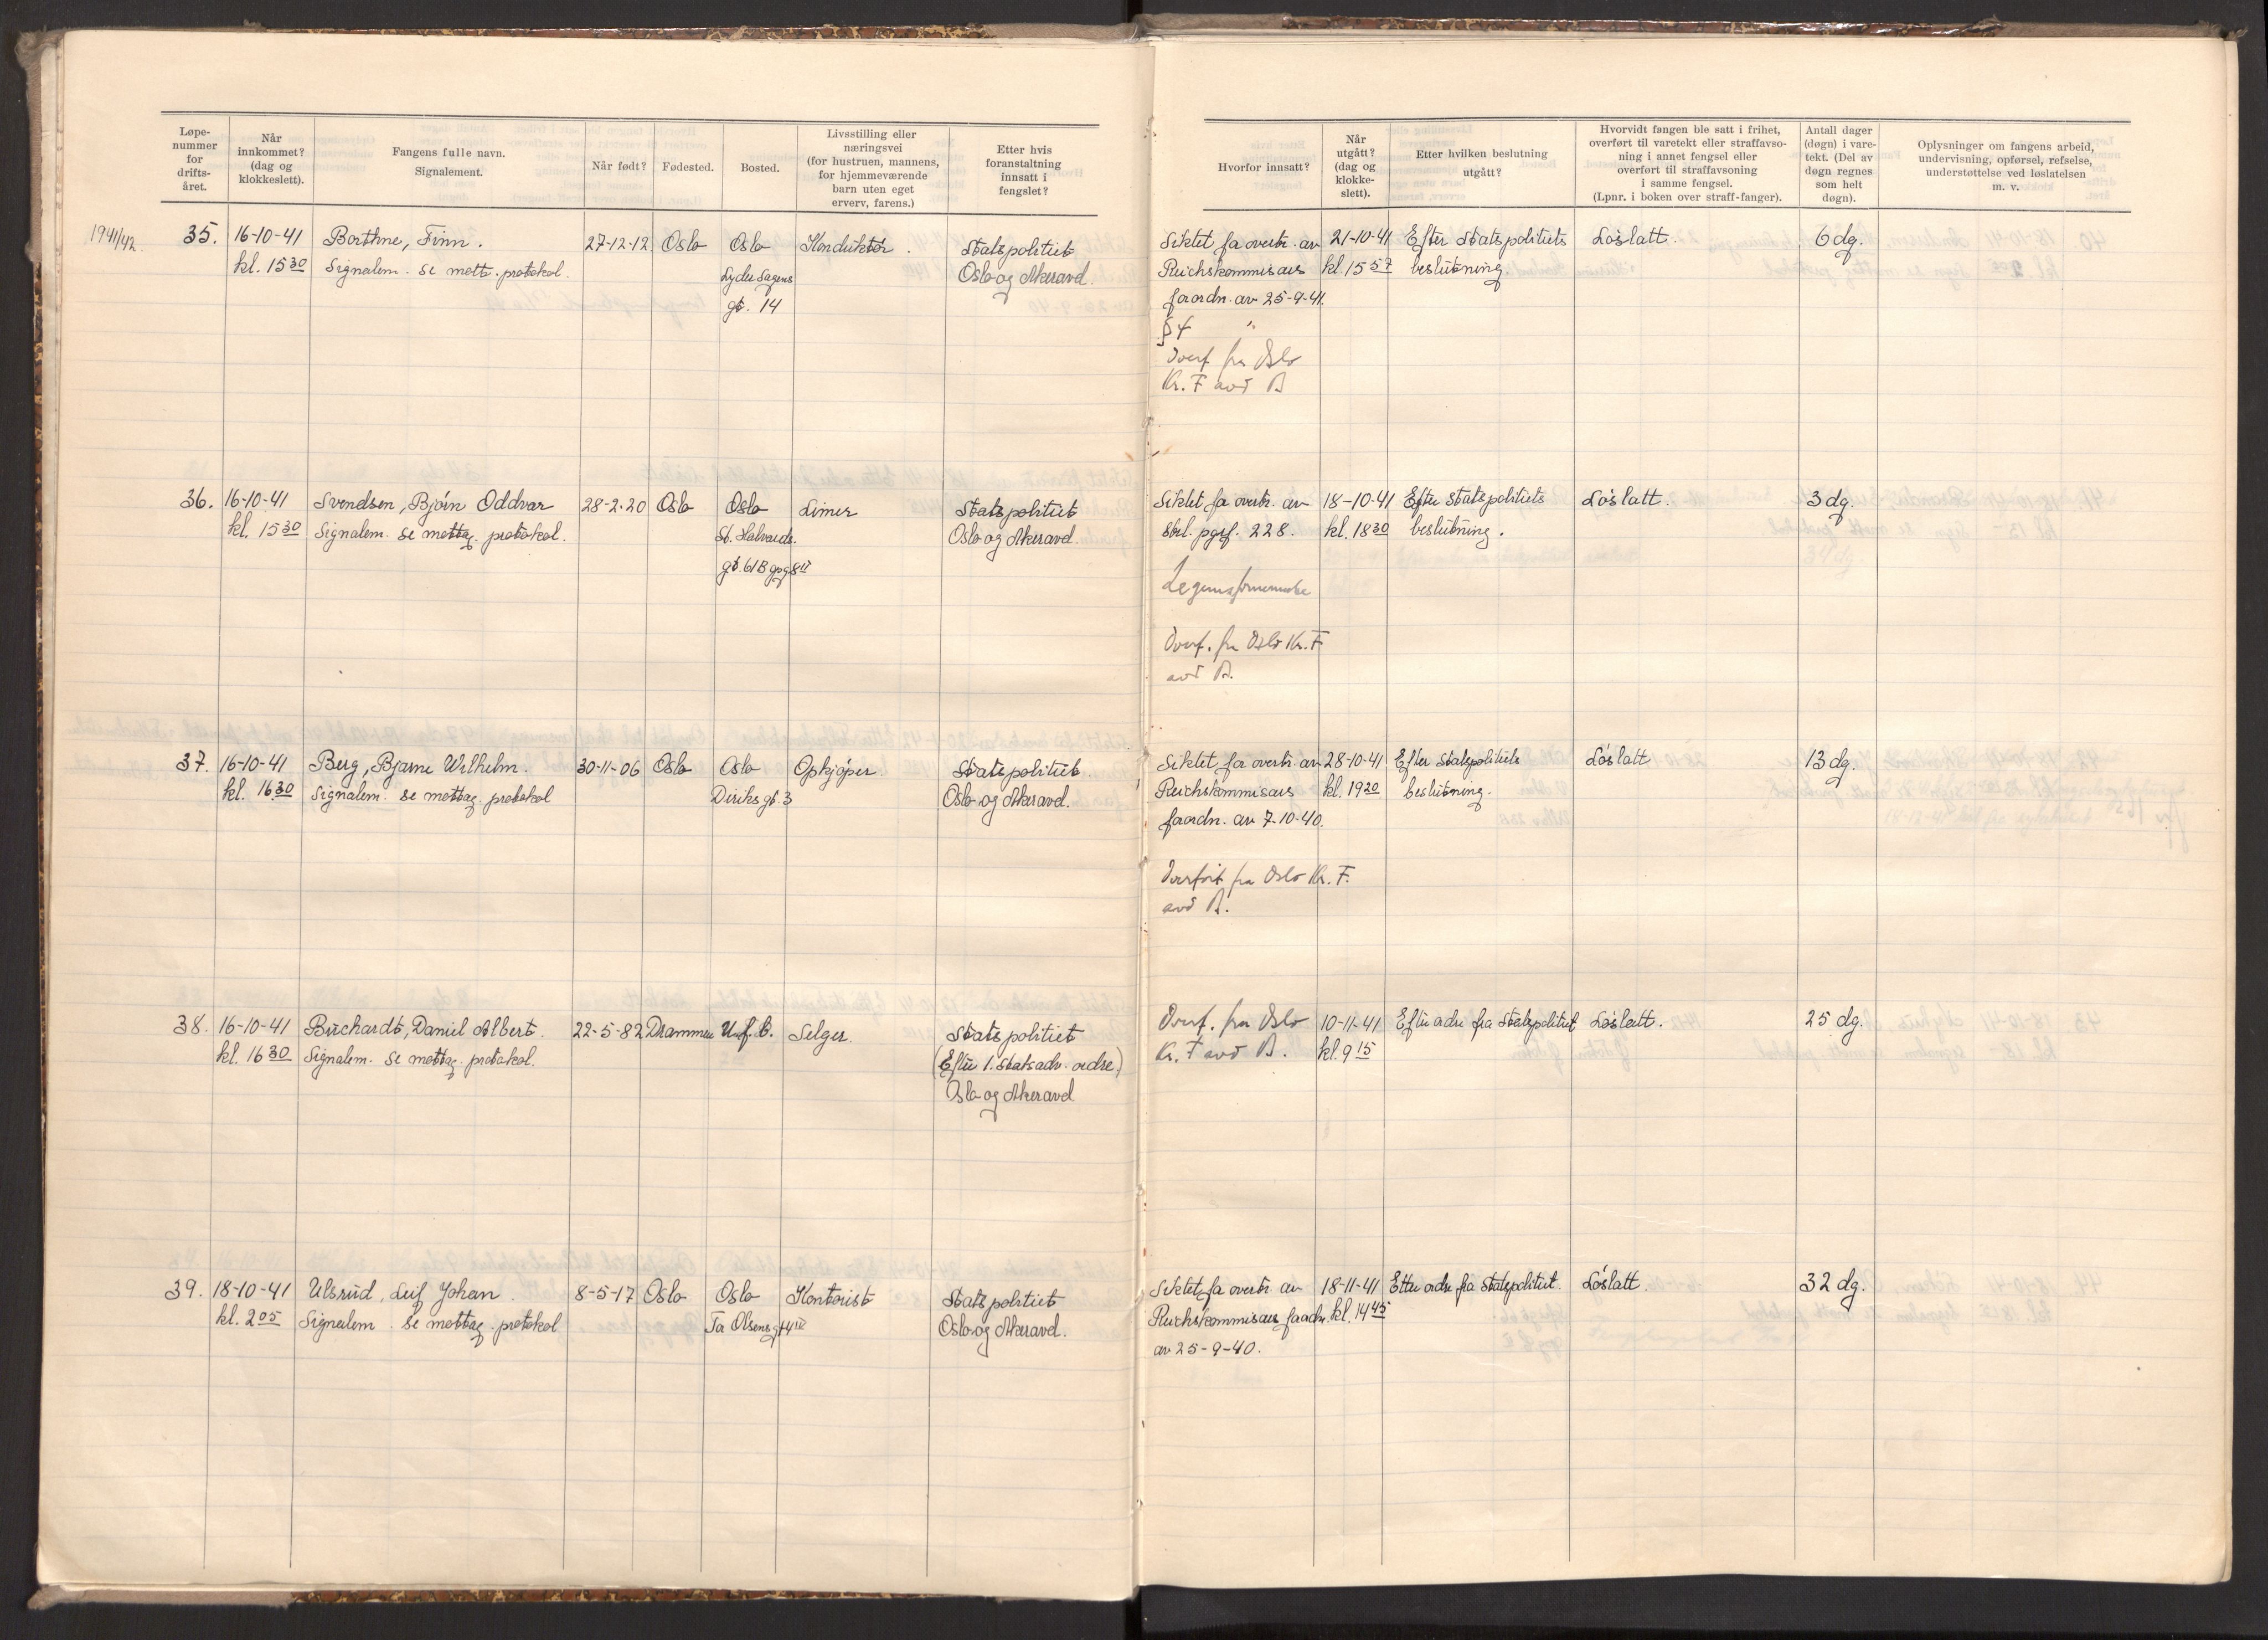 Løpe-
nummer
for
drifts-
året.
Når
innkommet?
(dag og
klokkeslett).
Fangens fulle navn.
Signalement.
Når født?
Fødested.
Bosted.
Livsstilling eller
næringsvei
(for hustruen, mannens,
for hjemmeværende
barn uten eget
erverv, farens.)
Etter hvis
foranstaltning
innsatt i
fengslet?
Hvorfor innsatt?
Når
utgått?
(dag og
klokke-
slett).
Etter hvilken beslutning
utgått?
Hvorvidt fangen ble satt i frihet,
overført til varetekt eller straffavso-
ning i annet fengsel eller
overført til straffavsoning
i samme fengsel.
(Lpnr. i boken over straff-fanger).
Antall dager
(døgn) i vare-
tekt. (Del av
døgn regnes
som helt
døgn).
Oplysninger om fangens arbeid,
undervisning, opførsel, refselse,
understøttelse ved løslatelsen
m. v.
1941/42
35.
16-10-41
kl. 15 30
Borthne, Finn.
Signalem. se mott. protokol.
27-12-12
Oslo
Oslo
Lyder Sagens
gt. 14
Konduktør.
Statspolitiet
Oslo og Akeravd.
Siktet for overtr. av
Reichskommisars
forordn. av 25-9-41.
§ 4 "
Overf fra Oslo
Kr. F avd B
21-10-41
kl. 15 57
Efter Statspolitiets
beslutning.
Løslatt.
6 dg.
36.
16-10-41
kl. 15 30
Svendsen, Bjørn Oddvar
Signalem. se mottag. protokol.
28-2-20
Oslo
Oslo
St. Halvards.
gt. 61B opg 8 II
Limer
Statspolitiet
Oslo og Akeravd.
Siktet for overtr. av
Strl. pgrf. 228.
Legemsfornermelse
Overf. fra Oslo Kr. F
avd B.
18-10-41
kl. 18 30
Efter Statspolitiets
beslutning.
Løslatt
3 dg.
37.
16-10-41
kl. 16 30
Berg, Bjarne Wilhelm.
Signalem. se mottag. protokol
30-11-06
Oslo
Oslo
Diriks gt. 3
Opkjøper.
Statspolitiet.
Oslo og Akeravd.
Siktet for overtr. av
Reichskommisars
forordn. av 7-10-40.
Overført fra Oslo Kr. F.
avd B.
28-10-41
kl. 19 20
Efter Statspolitiets
beslutning.
Løslatt
13 dg.
38.
16-10-41
kl. 16 30
Buchardt, Daniel Albert.
Signalem. se mottag. protokol.
22-5-82
Drammen
U.f.b.
Selger.
Statspolitiet
(Efter 1. Statsadv. ordre.)
Oslo og Akeravd
Overf. fra Oslo
Kr. F avd B.
10-11-41
kl. 9 15
Efter ordre fra Statspolitiet
Løslatt.
25 dg.
39.
18-10-41
kl. 2 05
Ulsrud, Leif Johan.
Signalem. se mottag. protokol
8-5-17
Oslo
Oslo
Tor Olsens gt 4 II
Kontorist
Statspolitiet
Oslo og Akeravd.
Siktet for overtr. av
Reichskommisars forordn.
av 25-9-40.
18-11-41
kl. 14 45
Etter ordre fra Statspolitiet.
Løslatt.
32 dg.